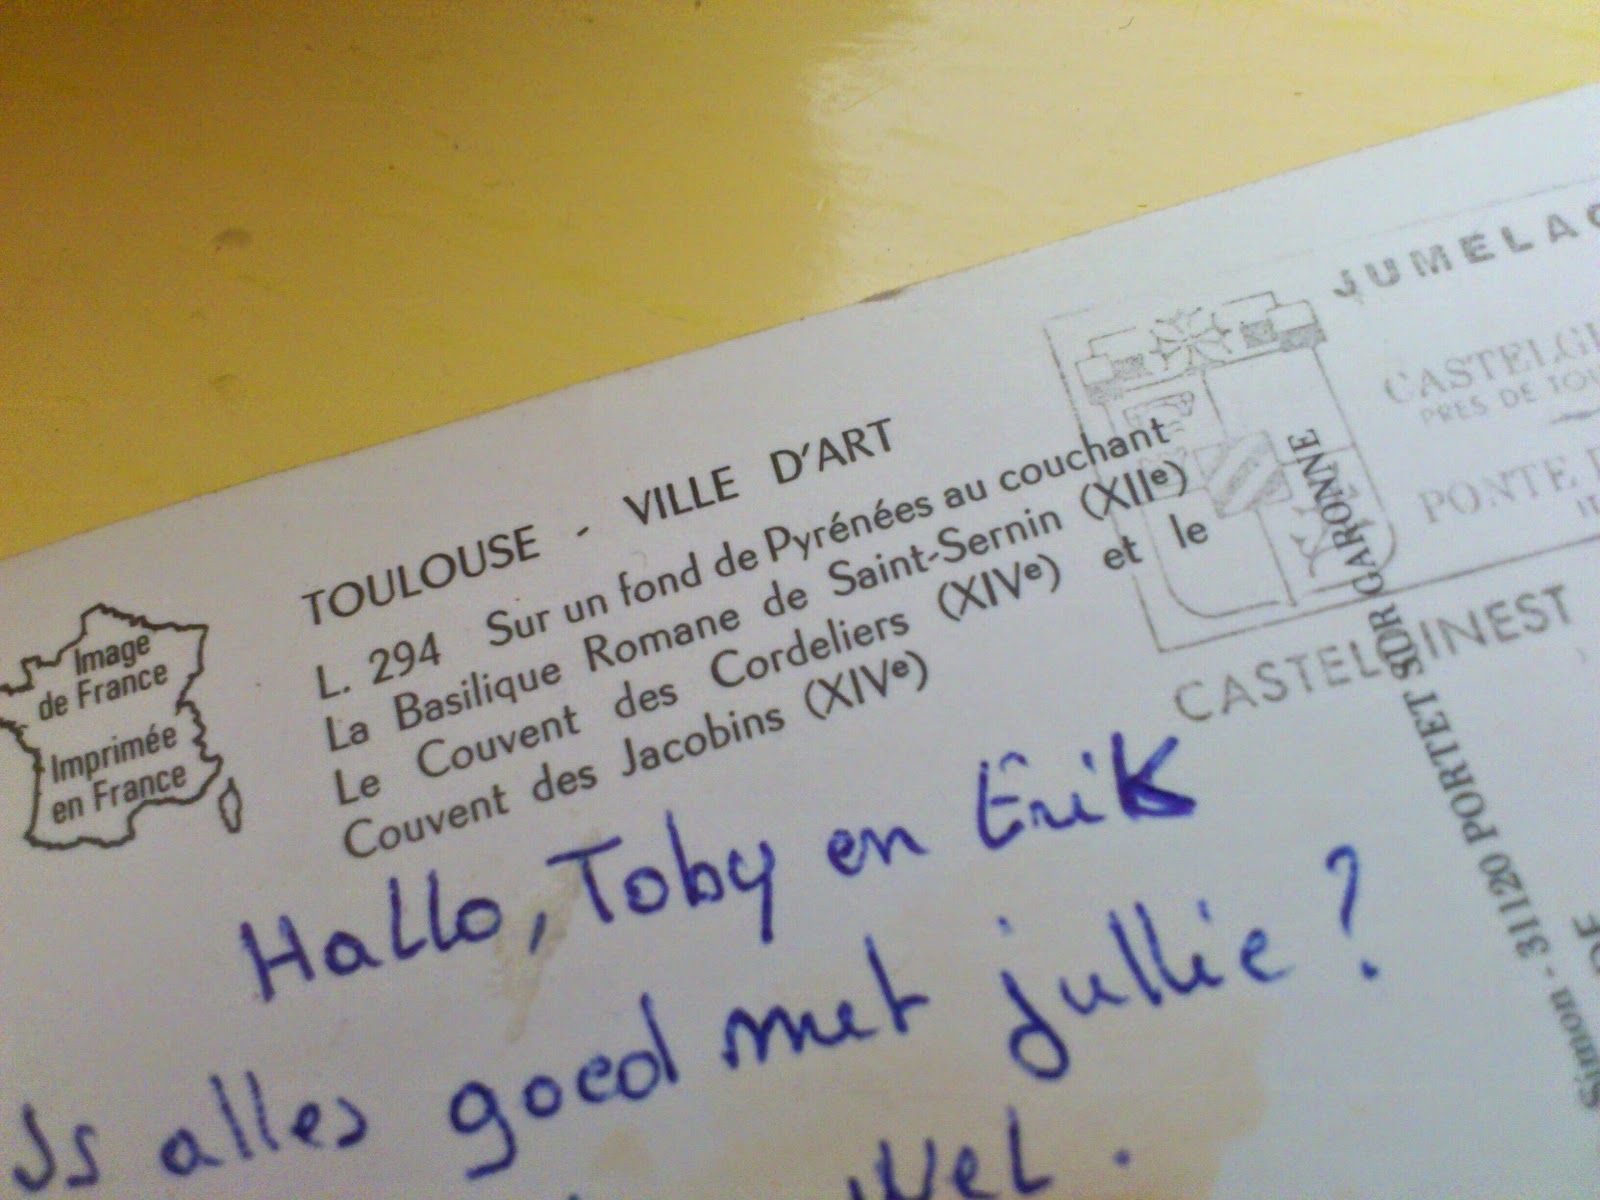 Image
de France
Imprimée
en France
TOULOUSE - VILLE D'ART
L. 294 Sur un fond de Pyrénées au couchant
La Basilique Romane de Saint-Sernin (XIIe)
Le Couvent des Cordeliers (XIVe) et le
Couvent des Jacobins (XIVe)
JUMELAG
CASTELGI
PRES DE TOU
PONTE
CASTELGINEST
31120 PORTET SUR GARONNE
Hallo, Toby en Erik
Is alles goed met jullie?
wel.